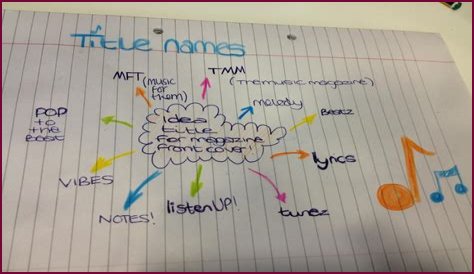 Title names
MFT (music
for
them)
TMM
(The music magazine)
melody
Beatz
lyncs
tunez
listenUP!
NOTES!
VIBES
POP
to
the
Beat
Idea
title
for magazine
front cover!